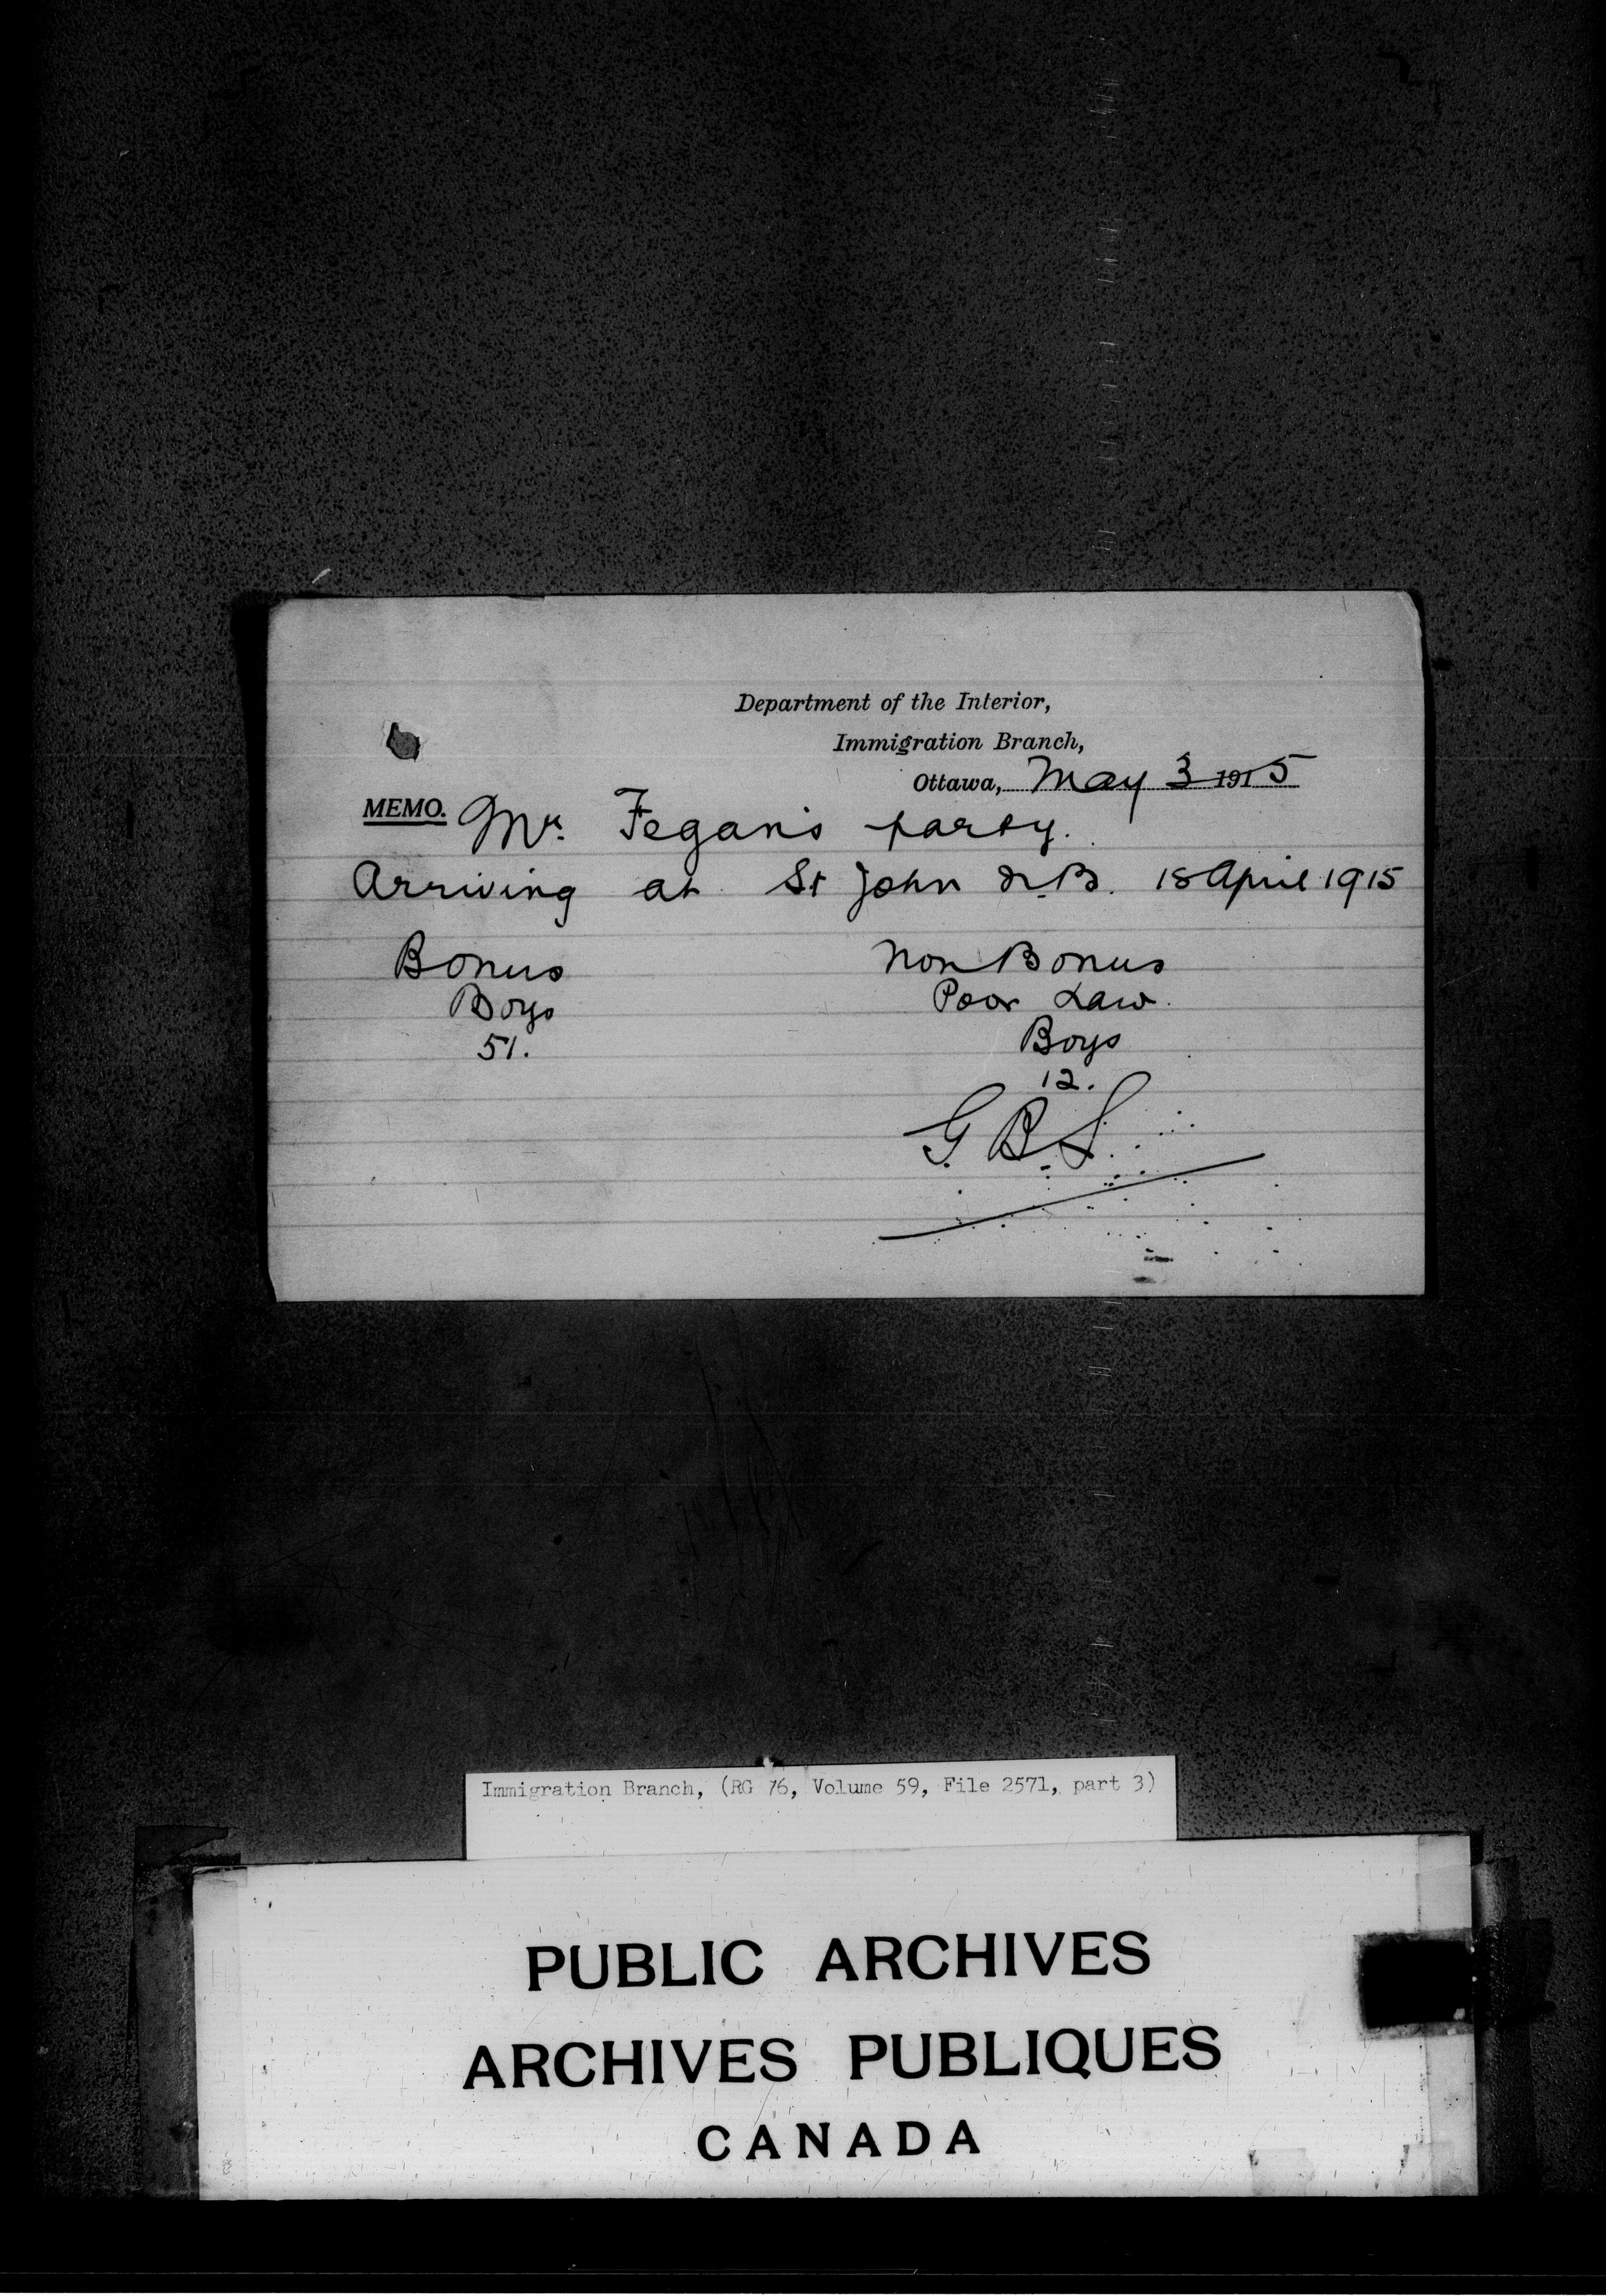 Department of the Interior,
Immigration Branch,
Ottawa, May 3 1915
MEMO. Mr. Fegan's party.
Arriving at St John N.B. 18 April 1915
Bonus
Boys
51.
Non Bonus
Poor Law.
Boys
12.
G.B.S.
Immigration Branch, (RG 76, Volume 59, File 2571, part 3)
PUBLIC ARCHIVES
ARCHIVES PUBLIQUES
CANADA